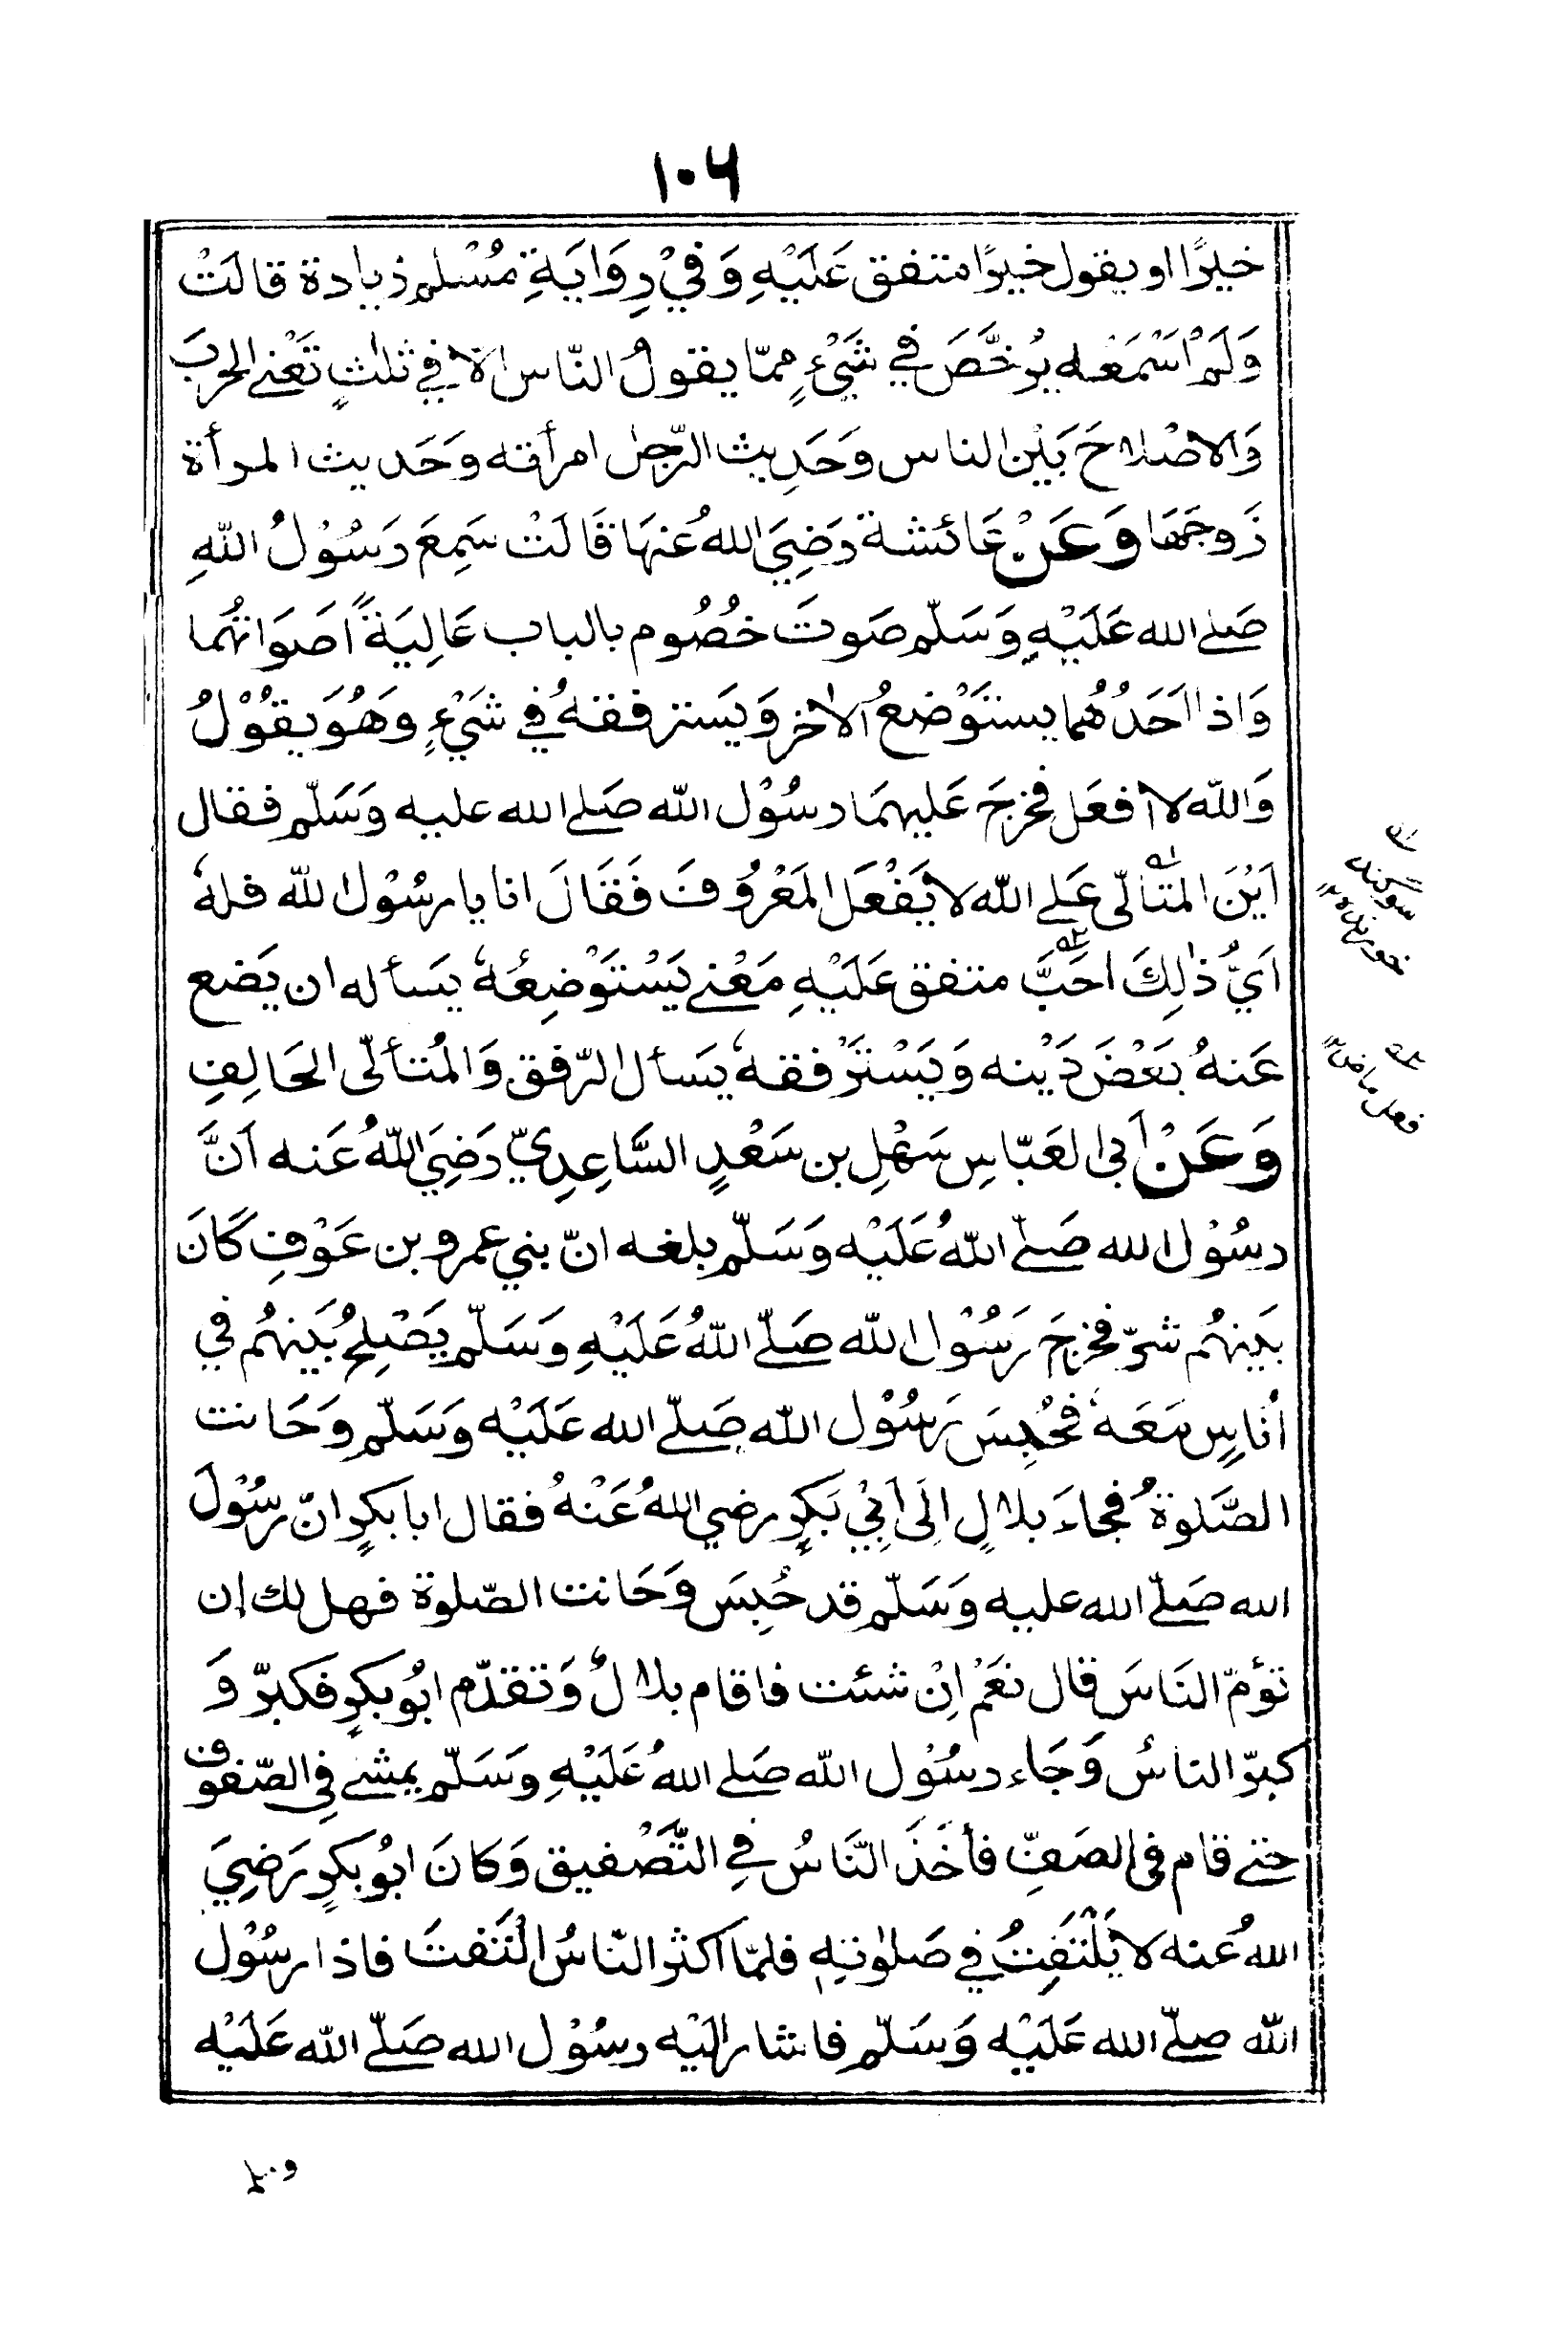 ۱۰۶
خيرًا او يقول خيرًا متفق عَلَيْهِ وَفِيْ رِوَايَةِ مُسْلِم زيادة قالَتْ
وَلَمْ اَسْمَعْه يُرَخَّصَ فِي شَيْءٍ ممّا يقولُ النّاس الّا فِي ثلٰثٍ تَعْنے الحربَ
وَالاصْلاحَ بَيْنَ الناس وَحَدِيث الرّجل امرأته وَحَديث المرأة
زَوجَها وَعَنْ عَائشة رَضِيَ اللهُ عنهَا قَالَتْ سَمِعَ رَسُوْلُ اللهِ
صَلے الله عَلَيْهِ وَسَلّم صَوتَ خُصُوم بالباب عَالِيَةً اَصَوَاتُهُما
وَاذا اَحَدُهُما يستَوْضعُ الاٰخر وَيَسترفقهُ فِي شَيْءٍ وهُوَ يقُوْلُ
وَاللّه لا أفعَل فخرجَ عَليهمَا رسُوْل اللّه صَلے الله عليه وَسَلّم فقال
اَيْنَ المتَألّى عَلے اللّه لا يَفْعَل المَعْرُوفَ فَقَالَ انا يا رسُوْل اللّه فلهٗ
اَيُّ ذٰلِكَ احَبَّ متفق عَلَيْهِ مَعْنے يَسْتَوْضِعُهٗ يسَأله ان يَضع
عَنهُ بَعْضَ دَيْنه وَيَسْتَرْفقهٗ يسَأل الرّفق وَالمُتألّى الحَالِفِ
وَعَنْ أبى العَبّاسِ سَهْلِ بن سَعْدٍ السَّاعِدِيّ رَضِيَ اللّهُ عَنه اَنَّ
رسُوْل الله صَلّے اللّهُ عَلَيْه وَسَلّم بلغه انّ بني عمرو بن عَوْفٍ كَانَ
بَينهُم شرّ فخرجَ رَسُوْل اللّه صَلّے اللّهُ عَلَيْهِ وَسَلّم يَصْلِحُ بَينهُم في
اُنَاسٍ مَعَهٗ فحُبِسَ رَسُوْل اللّه صَلّے الله عَلَيْه وَسَلّم وَحَانت
الصَّلوةُ فجاءَ بلالٍ اِلَى أَبِيْ بَكرٍ رضي اللهُ عَنْهُ فقال ابا بكرٍ انّ رسُوْلَ
الله صَلّے الله عليه وَسَلّم قد حُبِسَ وَحَانت الصّلوة فهل لك إن
تؤمّ النَاسَ قال نعَمْ اِنْ شئت فاقام بلالٌ وَتقدّم ابُو بكرٍ فكبرّ وَ
كبرّ الناسُ وَجَاء رسُوْل اللّه صَلے اللهُ عَلَيْهِ وَسَلّم يمشے فِى الصّفوف
حتے قام فى الصَفِّ فأخَذَ النَّاسُ فِي التَّصْفيق وَكانَ ابُو بكرٍ رَضِيَ
اللهُ عنه لا يَلْتَفِتُ فِي صَلوٰتِهٖ فلمّا اكثر النّاسُ الْتَفتَ فاذا رسُوْل
اللّه صلّے الله عَلَيْه وَسَلّم فاشار اِلَيْه رسُوْل الله صَلّے اللّه عَلَيْه
سوگند
خورنده ۱۲
فعل ماض ۱۲